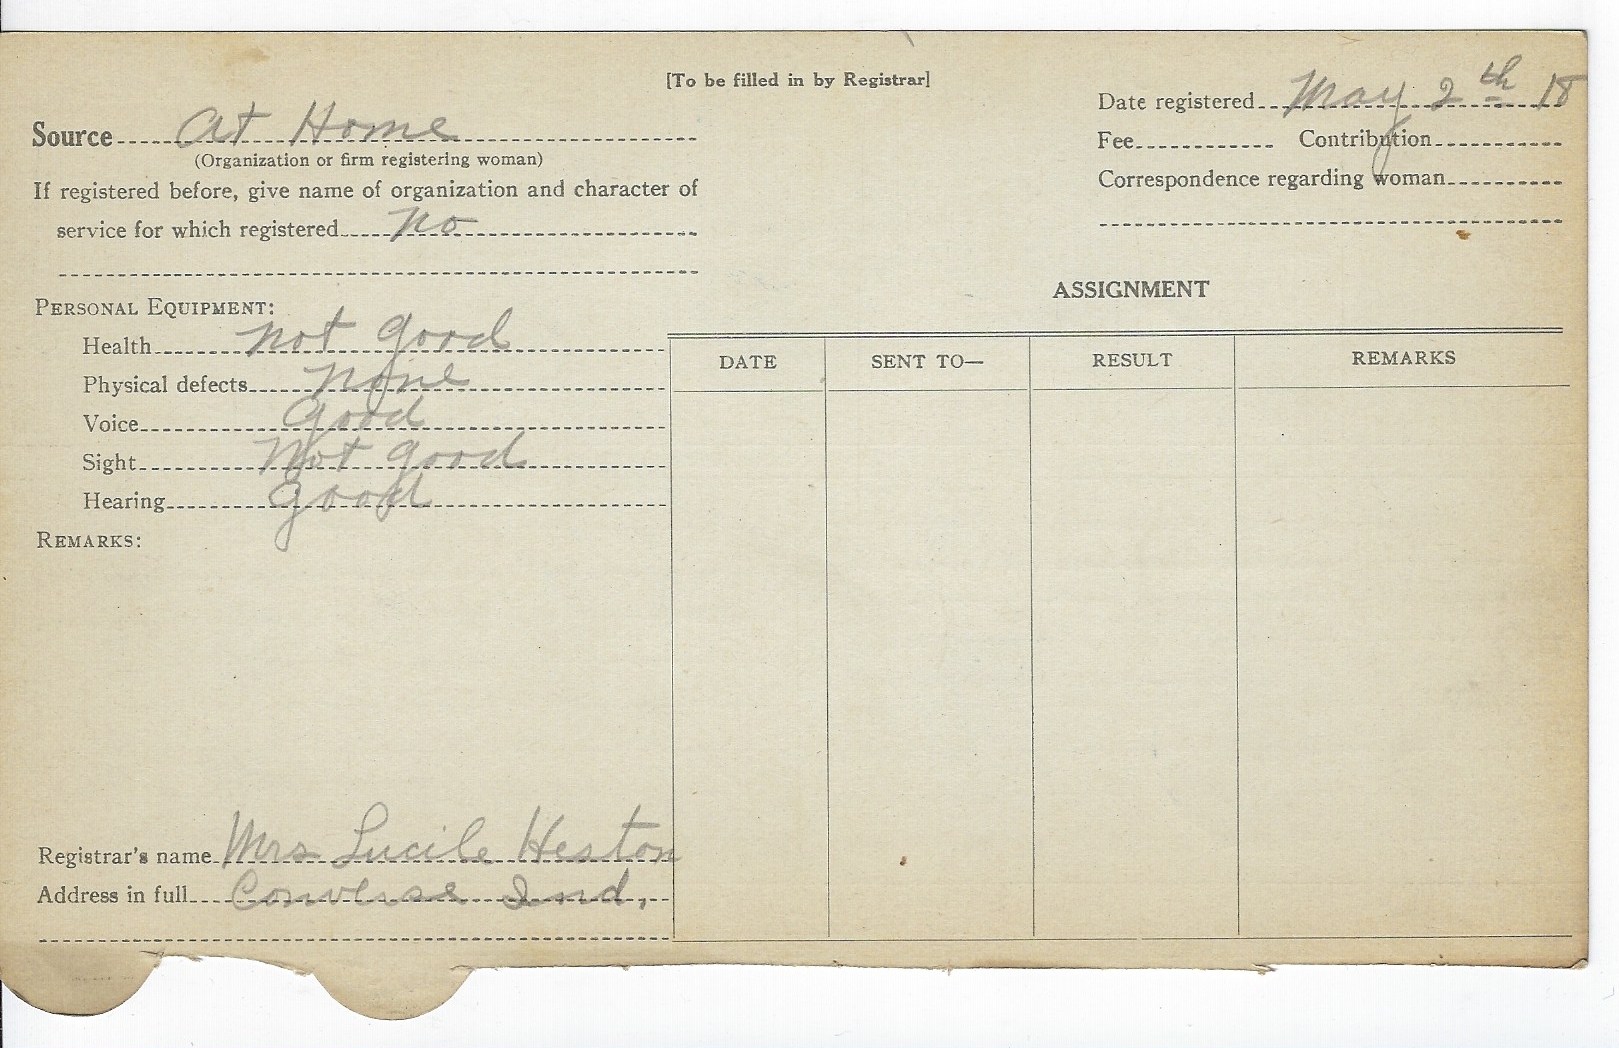 [To be filled in by Registrar]
Date registered May 2th 18
Source At Home
(Organization or firm registering woman)
Fee Contribution
If registered before, give name of organization and character of
service for which registered no
Correspondence regarding woman
PERSONAL EQUIPMENT:
Health not good
Physical defects none
Voice good
Sight Not good
Hearing good
REMARKS:
ASSIGNMENT
DATE SENT TO— RESULT REMARKS
Registrar's name Mrs Lucile Heston
Address in full Converse Ind,